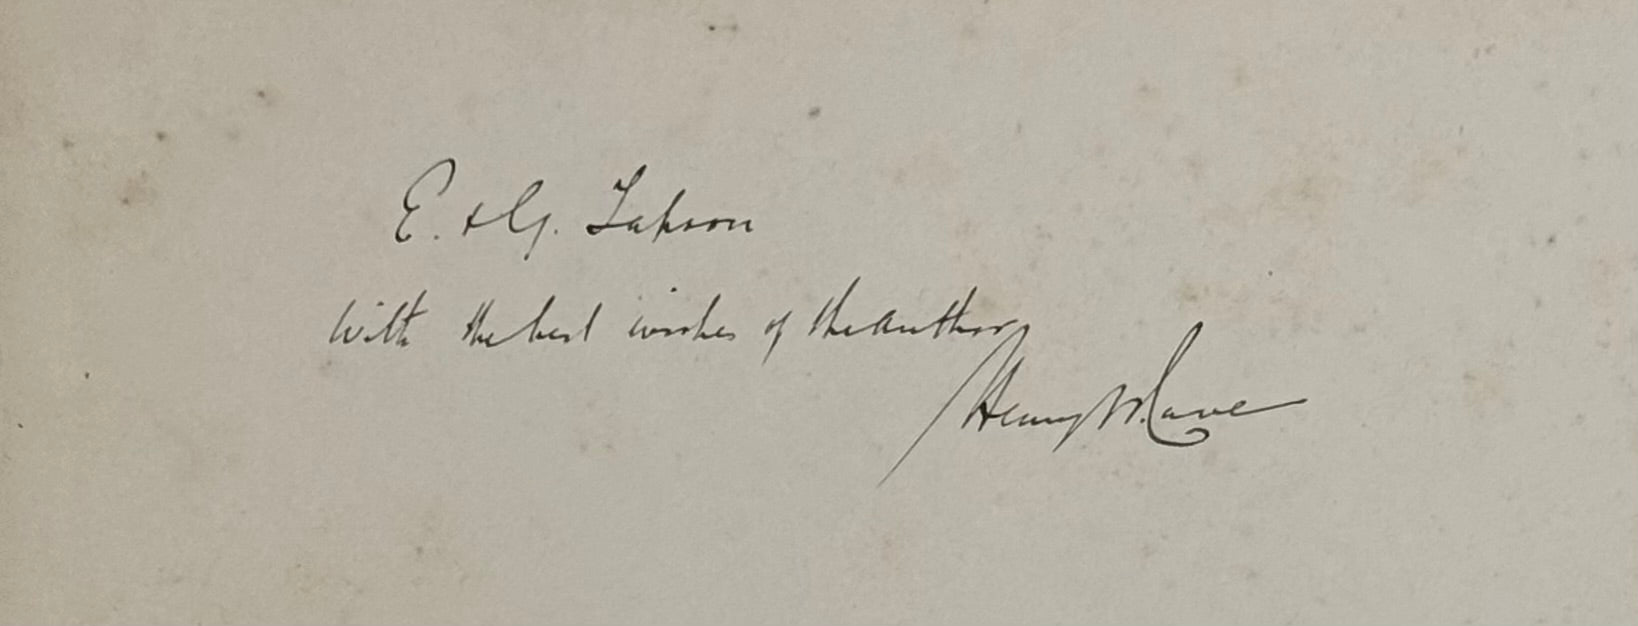 E. & G. Tapson
With the best wishes of the author
Henry W. Cave